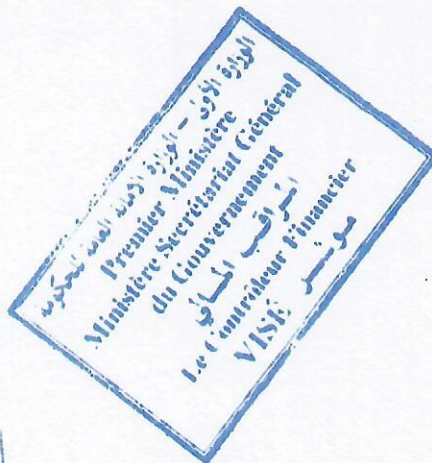 الوزارة الأولى – الوزارة الأمانة العامة للحكومة
Premier Ministère
Ministère Secrétariat Général
du Gouvernement
المراقب المالي
Le Contrôleur Financier
VISE مؤشر